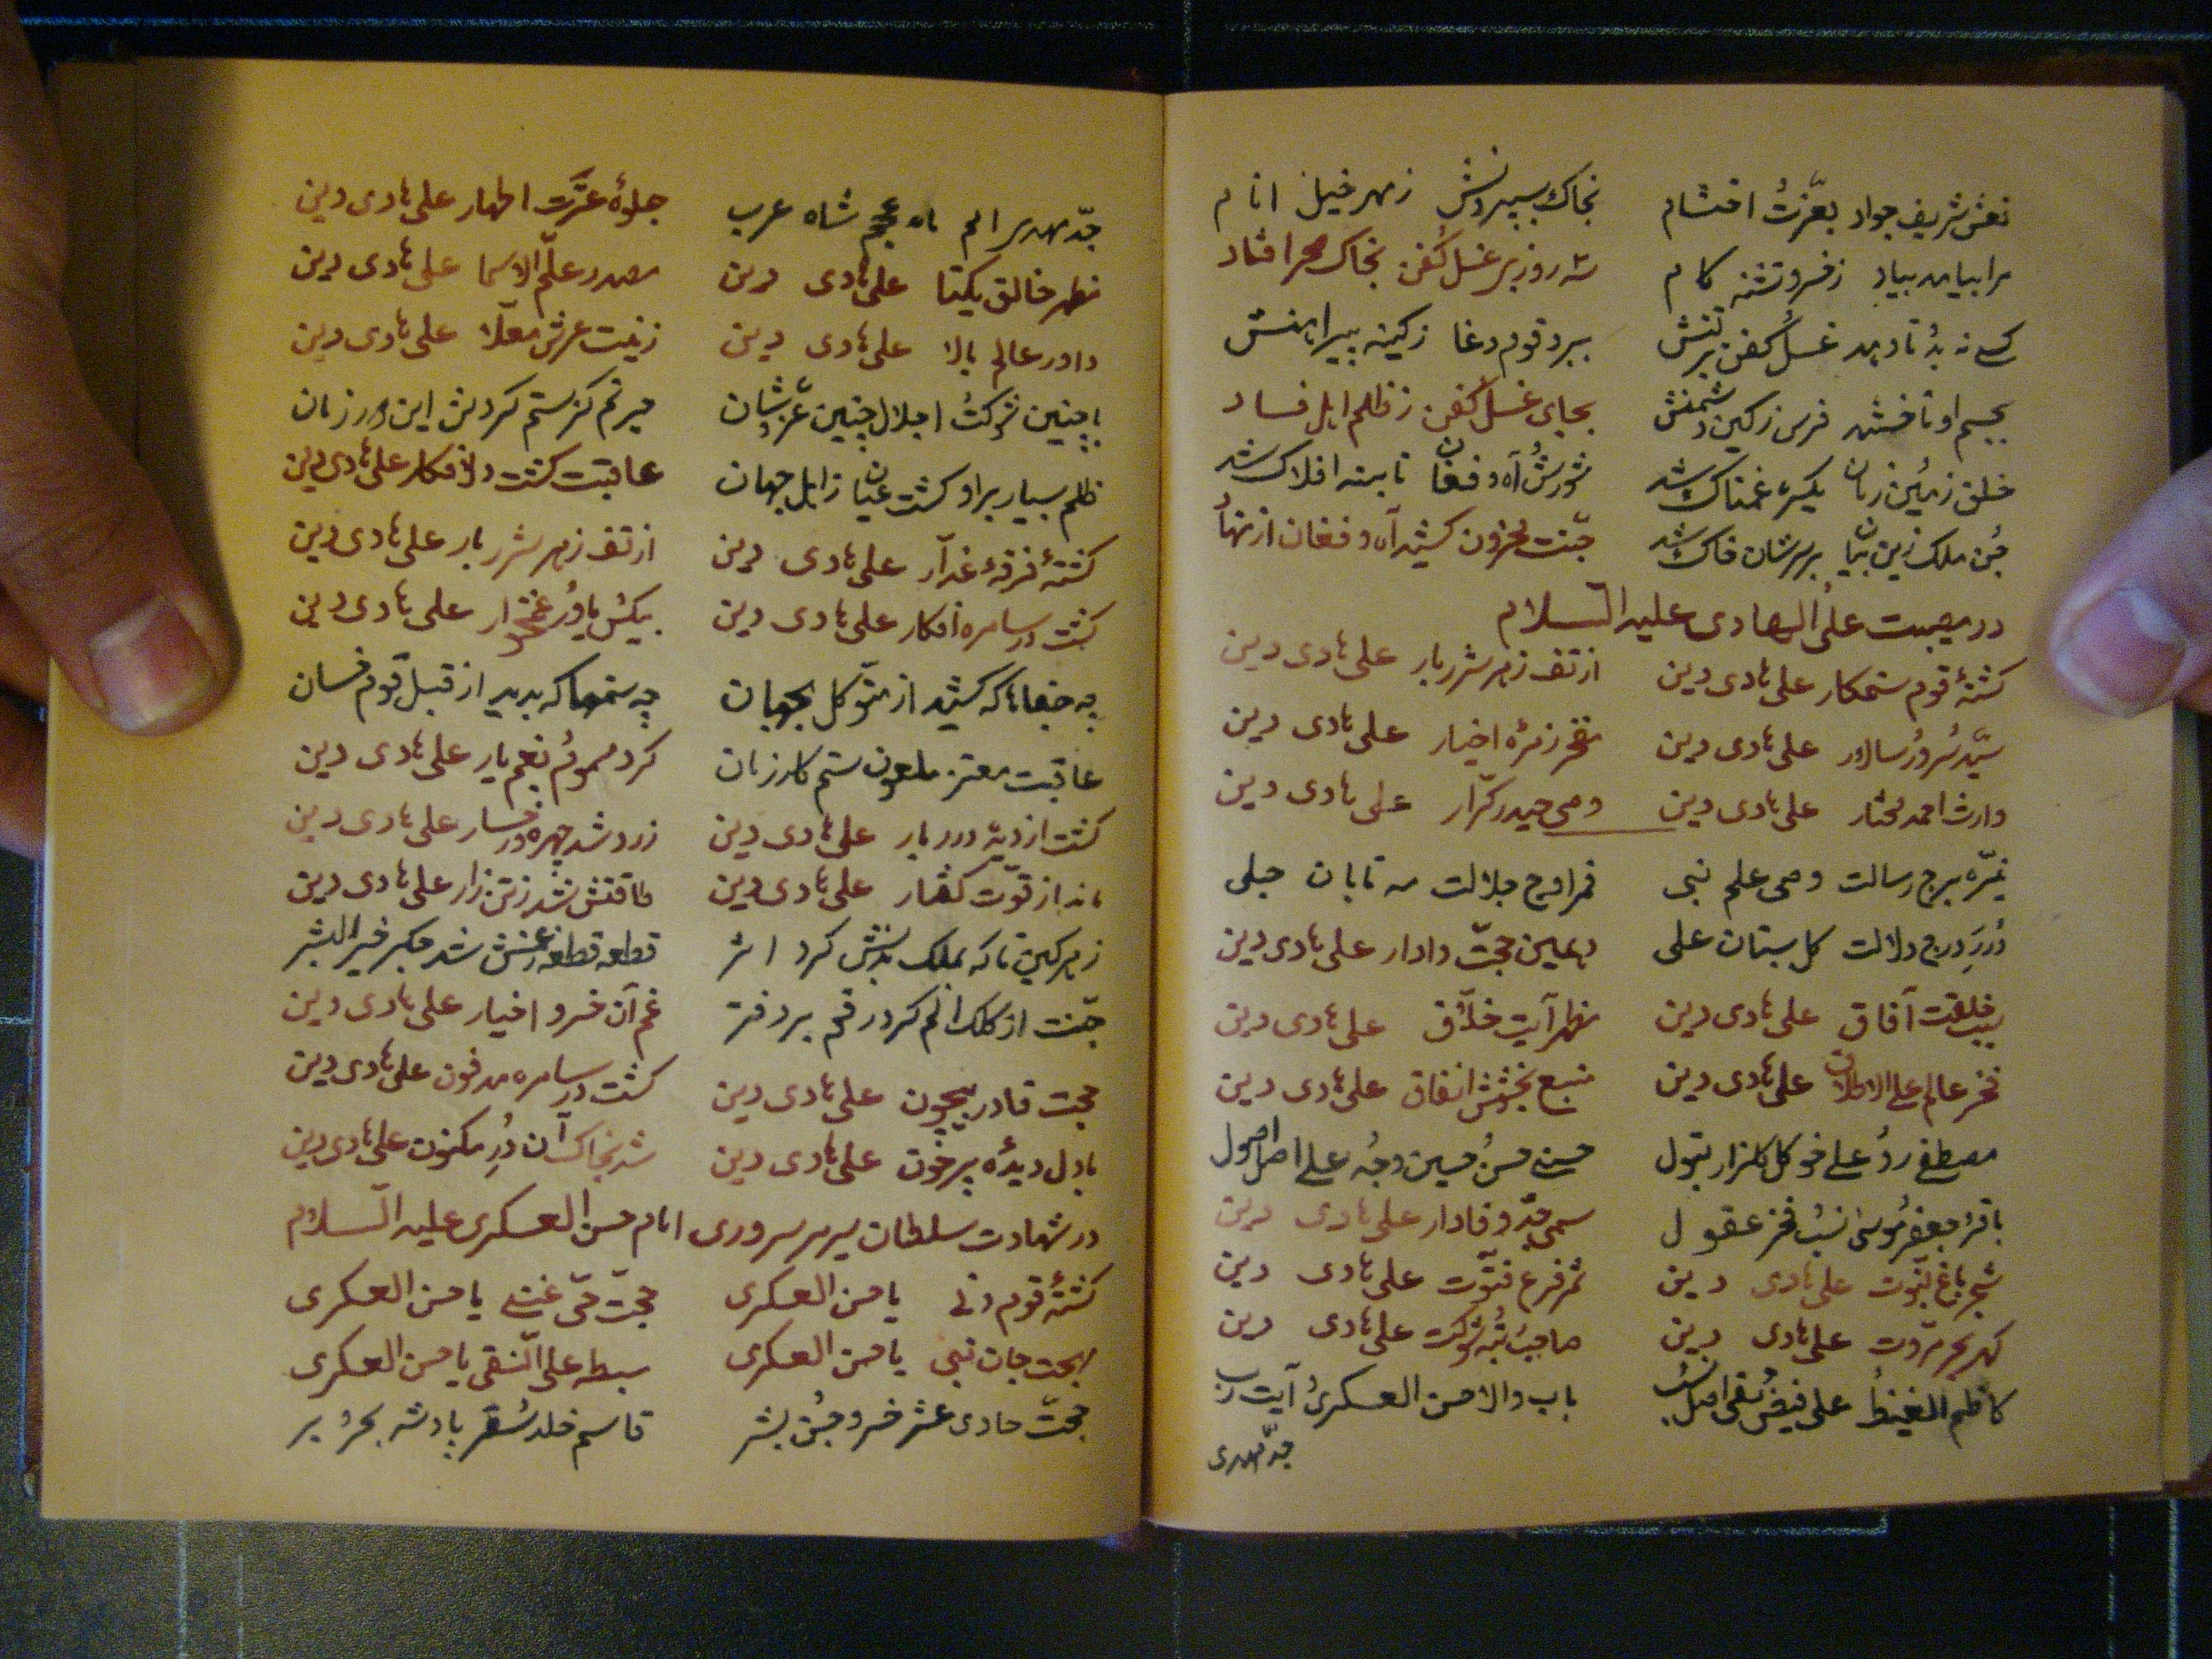 نعش شریف جواد بعزّت احتشام بخاک بسپردنش زهر خیل انام
مرا بیامد بیاد زخسرو تشنه کام سه روز بی غسل کفن بخاک صحرا فتاد
کسی نه بُد تا دهد غسل کفن بر تنش ببرد قوم دغا زکینه پیراهنش
بجسم او تاختند فرس زکین دشمنش بجای غسل کفن زظلم اهل فساد
خلق زمین زمان یکسره غمناک شد شورش آه و فغان تا بنه افلاک شد
جن ملک زین بیان بر سرشان خاک شد جنّت محزون کشید آه و فغان از نهاد
در مصیبت علی الهادی علیه السلام
کشتهٔ قوم ستمکار علی هادی دین از تف زهر شرر بار علی هادی دین
سیّد سرور سالار علی هادی دین مفخر زمرهٔ اخیار علی هادی دین
وارث احمد مختار علی هادی دین وصی حیدر کرّار علی هادی دین
نیّره برج رسالت وصی علم نبی قمر اوج جلالت مه تابان جلی
دُررِ درج دلالت گل بستان علی دهمین حجّت دادار علی هادی دین
سبب خلقت آفاق علی هادی دین مظهر آیت خلّاق علی هادی دین
فخر عالم علی الاطلاق علی هادی دین منبع بخشش انفاق علی هادی دین
مصطفی رو علی خو گل گلزار بتول حسنی حسن حسین وجه علی اصل اصول
باقر جعفر موسی نسب فخر عقول سمی جدّ وفادار علی هادی دین
شجر باغ نبوّت علی هادی دین ثمر فرع فتوّت علی هادی دین
گهر بحر مروّت علی هادی دین صاحب رتبه شوکت علی هادی دین
کاظم الغیظ علی فیض تقی اصل نسب باب والا حسن العسکری آیت رب
جدّ مهدی
جدّ مهدی امم ماه عجم شاه عرب جلوهٔ عزّت اطهار علی هادی دین
مظهر خالق یکتا علی هادی دین مصدر علّم الاسما علی هادی دین
داور عالم بالا علی هادی دین زینت عرش معلّا علی هادی دین
با چنین شوکت اجلال چنین عزّ و شان حیرتم کز ستم گردش این دور زمان
ظلم بسیار بر او گشت عیان ز اهل جهان عاقبت گشت دل افکار علی هادی دین
کشتهٔ فرقهٔ غدّار علی هادی دین از تف زهر شرر بار علی هادی دین
گشت در سامره افکار علی هادی دین بیکس یاور غمخوار علی هادی دین
چه جفاها که کشید از متوکّل بجهان چه ستمها که بدید از قبل قوم خسان
عاقبت معتز ملعون ستم کار زمان کرد مسموم بغم یار علی هادی دین
گشت از دیده درر بار علی هادی دین زرد شد چهره و رخسار علی هادی دین
ماند از قوّت گفتار علی هادی دین طاقتش شد زتن زار علی هادی دین
زهر کین تا که بملک بدنش کرد اثر قطعه قطعه زعنش شد جگر خیر البشر
جنّت از کلک الم کرد رقم بر دفتر غم آن خسرو اخیار علی هادی دین
حجت قادر بیچون علی هادی دین گشت در سامره مدفون علی هادی دین
با دل دیدهٔ پر خون علی هادی دین شد بخاک آن دُرِ مکنون علی هادی دین
در شهادت سلطان سریر سروری امام حسن العسکری علیه السّلام
کشتهٔ قوم دنی یا حسن العسکری حجّت حّی غنی یا حسن العسکری
بهجت جان نبی یا حسن العسکری سبط علی النّقی یا حسن العسکری
حجّت حادی عشر خسرو جن بشر قاسم خلد سقر پادشه بحر و بر